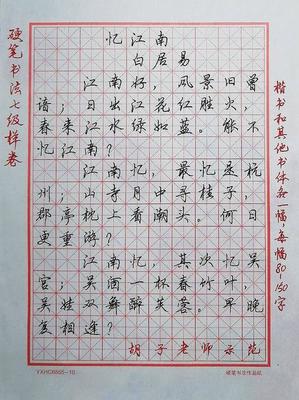 硬笔书法七级样卷
忆江南
白居易
江南好，风景旧曾
谙；日出江花红胜火，
春来江水绿如蓝。能不
忆江南？
江南忆，最忆是杭
州；山寺月中寻桂子，
郡亭枕上看潮头。何日
更重游？
江南忆，其次忆吴
宫；吴酒一杯春竹叶，
吴娃双舞醉芙蓉。早晚
复相逢？
胡子老师示范
楷书和其他书体各一幅，每幅80-150字
硬笔书法作品纸